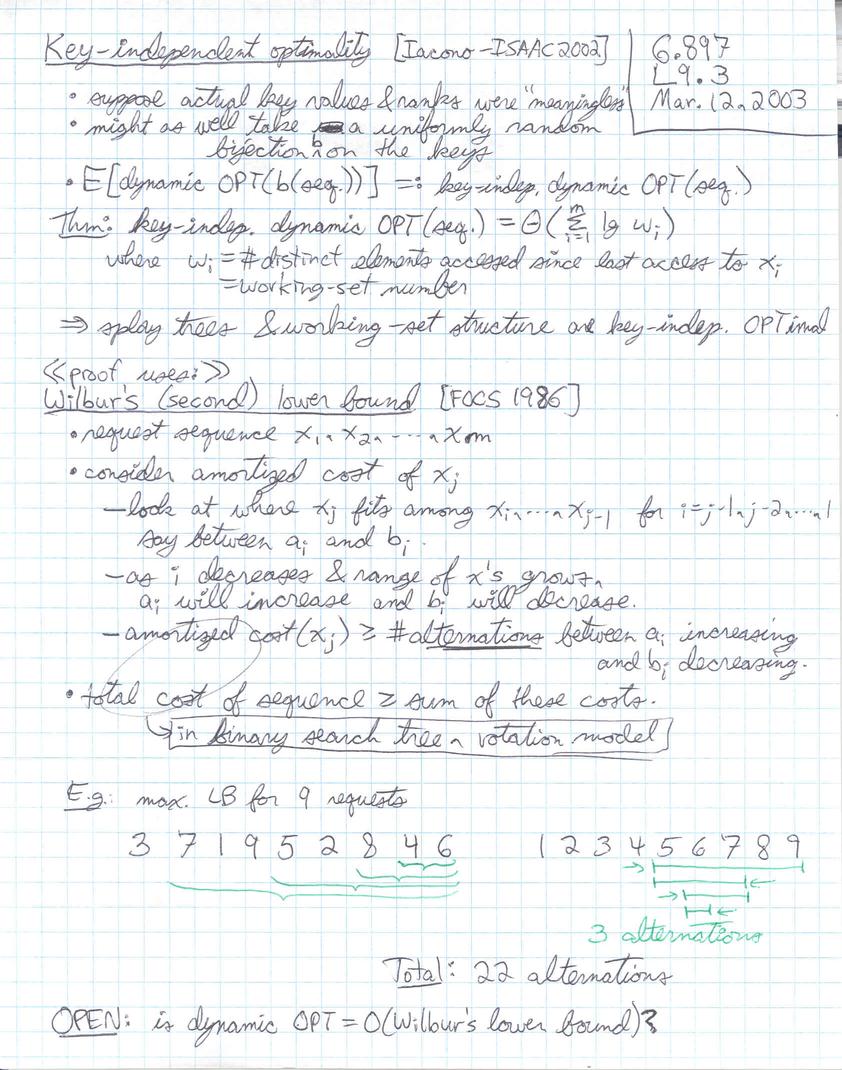 Key-independent optimality [Iacono-ISAAC 2002]
6.897
L9.3
Mar. 12, 2003
• suppose actual key values & ranks were "meaningless"
• might as well take a uniformly random
bijection b on the keys
• E[dynamic OPT(b(seq.))] =: key-indep. dynamic OPT(seq.)
Thm: key-indep. dynamic OPT(seq.) = Θ(∑_{i=1}^{m} lg w_i)
where w_i = # distinct elements accessed since last access to x_i
= working-set number
⇒ splay trees & working-set structure are key-indep. OPTimal
<<proof uses:>>
Wilbur's (second) lower bound [FOCS 1986]
• request sequence x_1, x_2, ..., x_m
• consider amortized cost of x_j
- look at where x_j fits among x_i, ..., x_{j-1} for i=j-1, j-2, ..., 1
say between a_i and b_i.
- as i decreases & range of x's grows,
a_i will increase and b_i will decrease.
- amortized cost(x_j) ≥ # alternations between a_i increasing
and b_i decreasing.
• total cost of sequence ≥ sum of these costs.
↳ in binary search tree, rotation model
E.g.: max. LB for 9 requests
3 7 1 9 5 2 8 4 6
1 2 3 4 5 6 7 8 9
3 alternations
Total: 22 alternations
OPEN: is dynamic OPT = O(Wilbur's lower bound)?